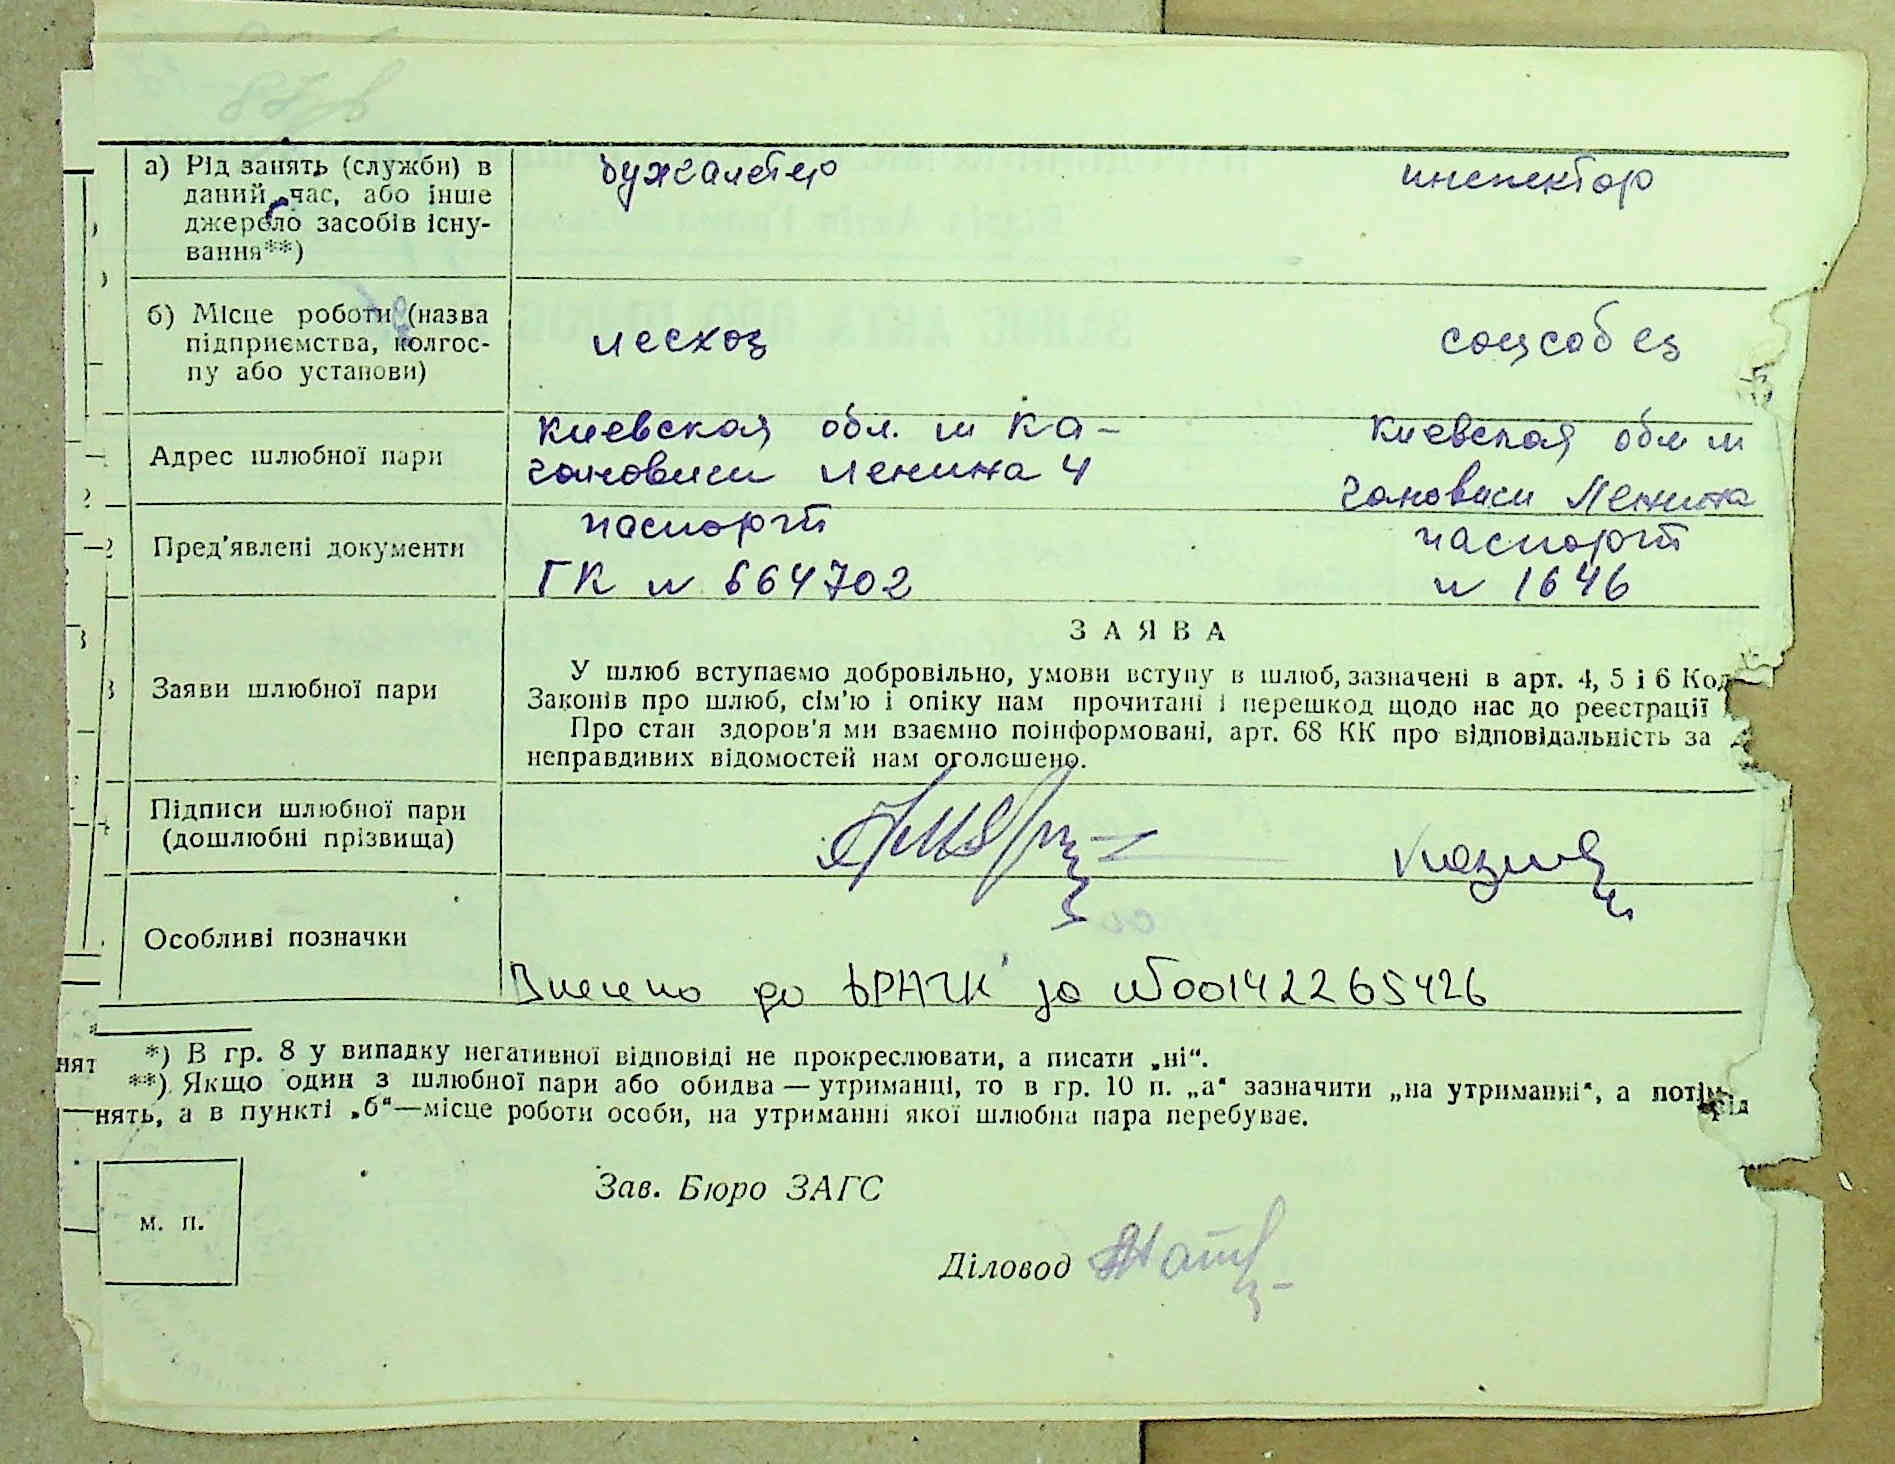 а) Рід занять (служби) в
даний час, або інше
джерело засобів існу-
вання**)
бухгалтер
инспектор
б) Місце роботи (назва
підприємства, колгос-
пу або установи)
лесхоз
соцсобез
Адрес шлюбної пари
Киевская обл. ст Ка-
гановичи Ленина 4
Киевская обл ст
Гановичи Ленина
Пред'явлені документи
паспорт
ГК № 664702
паспорт
№ 1646
Заяви шлюбної пари
ЗАЯВА
У шлюб вступаємо добровільно, умови вступу в шлюб, зазначені в арт. 4, 5 і 6 Код
Законів про шлюб, сім'ю і опіку нам прочитані і перешкод щодо нас до реєстрації
Про стан здоров'я ми взаємно поінформовані, арт. 68 КК про відповідальність за
неправдивих відомостей нам оголошено.
Підписи шлюбної пари
(дошлюбні прізвища)
Особливі позначки
Внесено до ДРАЦС за №00142265426
*) В гр. 8 у випадку негативної відповіді не прокреслювати, а писати „ні“.
**) Якщо один з шлюбної пари або обидва — утриманці, то в гр. 10 п. „а“ зазначити „на утриманні“, а потім рід
нять, а в пункті „б“—місце роботи особи, на утриманні якої шлюбна пара перебуває.
нят
м. п.
Зав. Бюро ЗАГС
Діловод